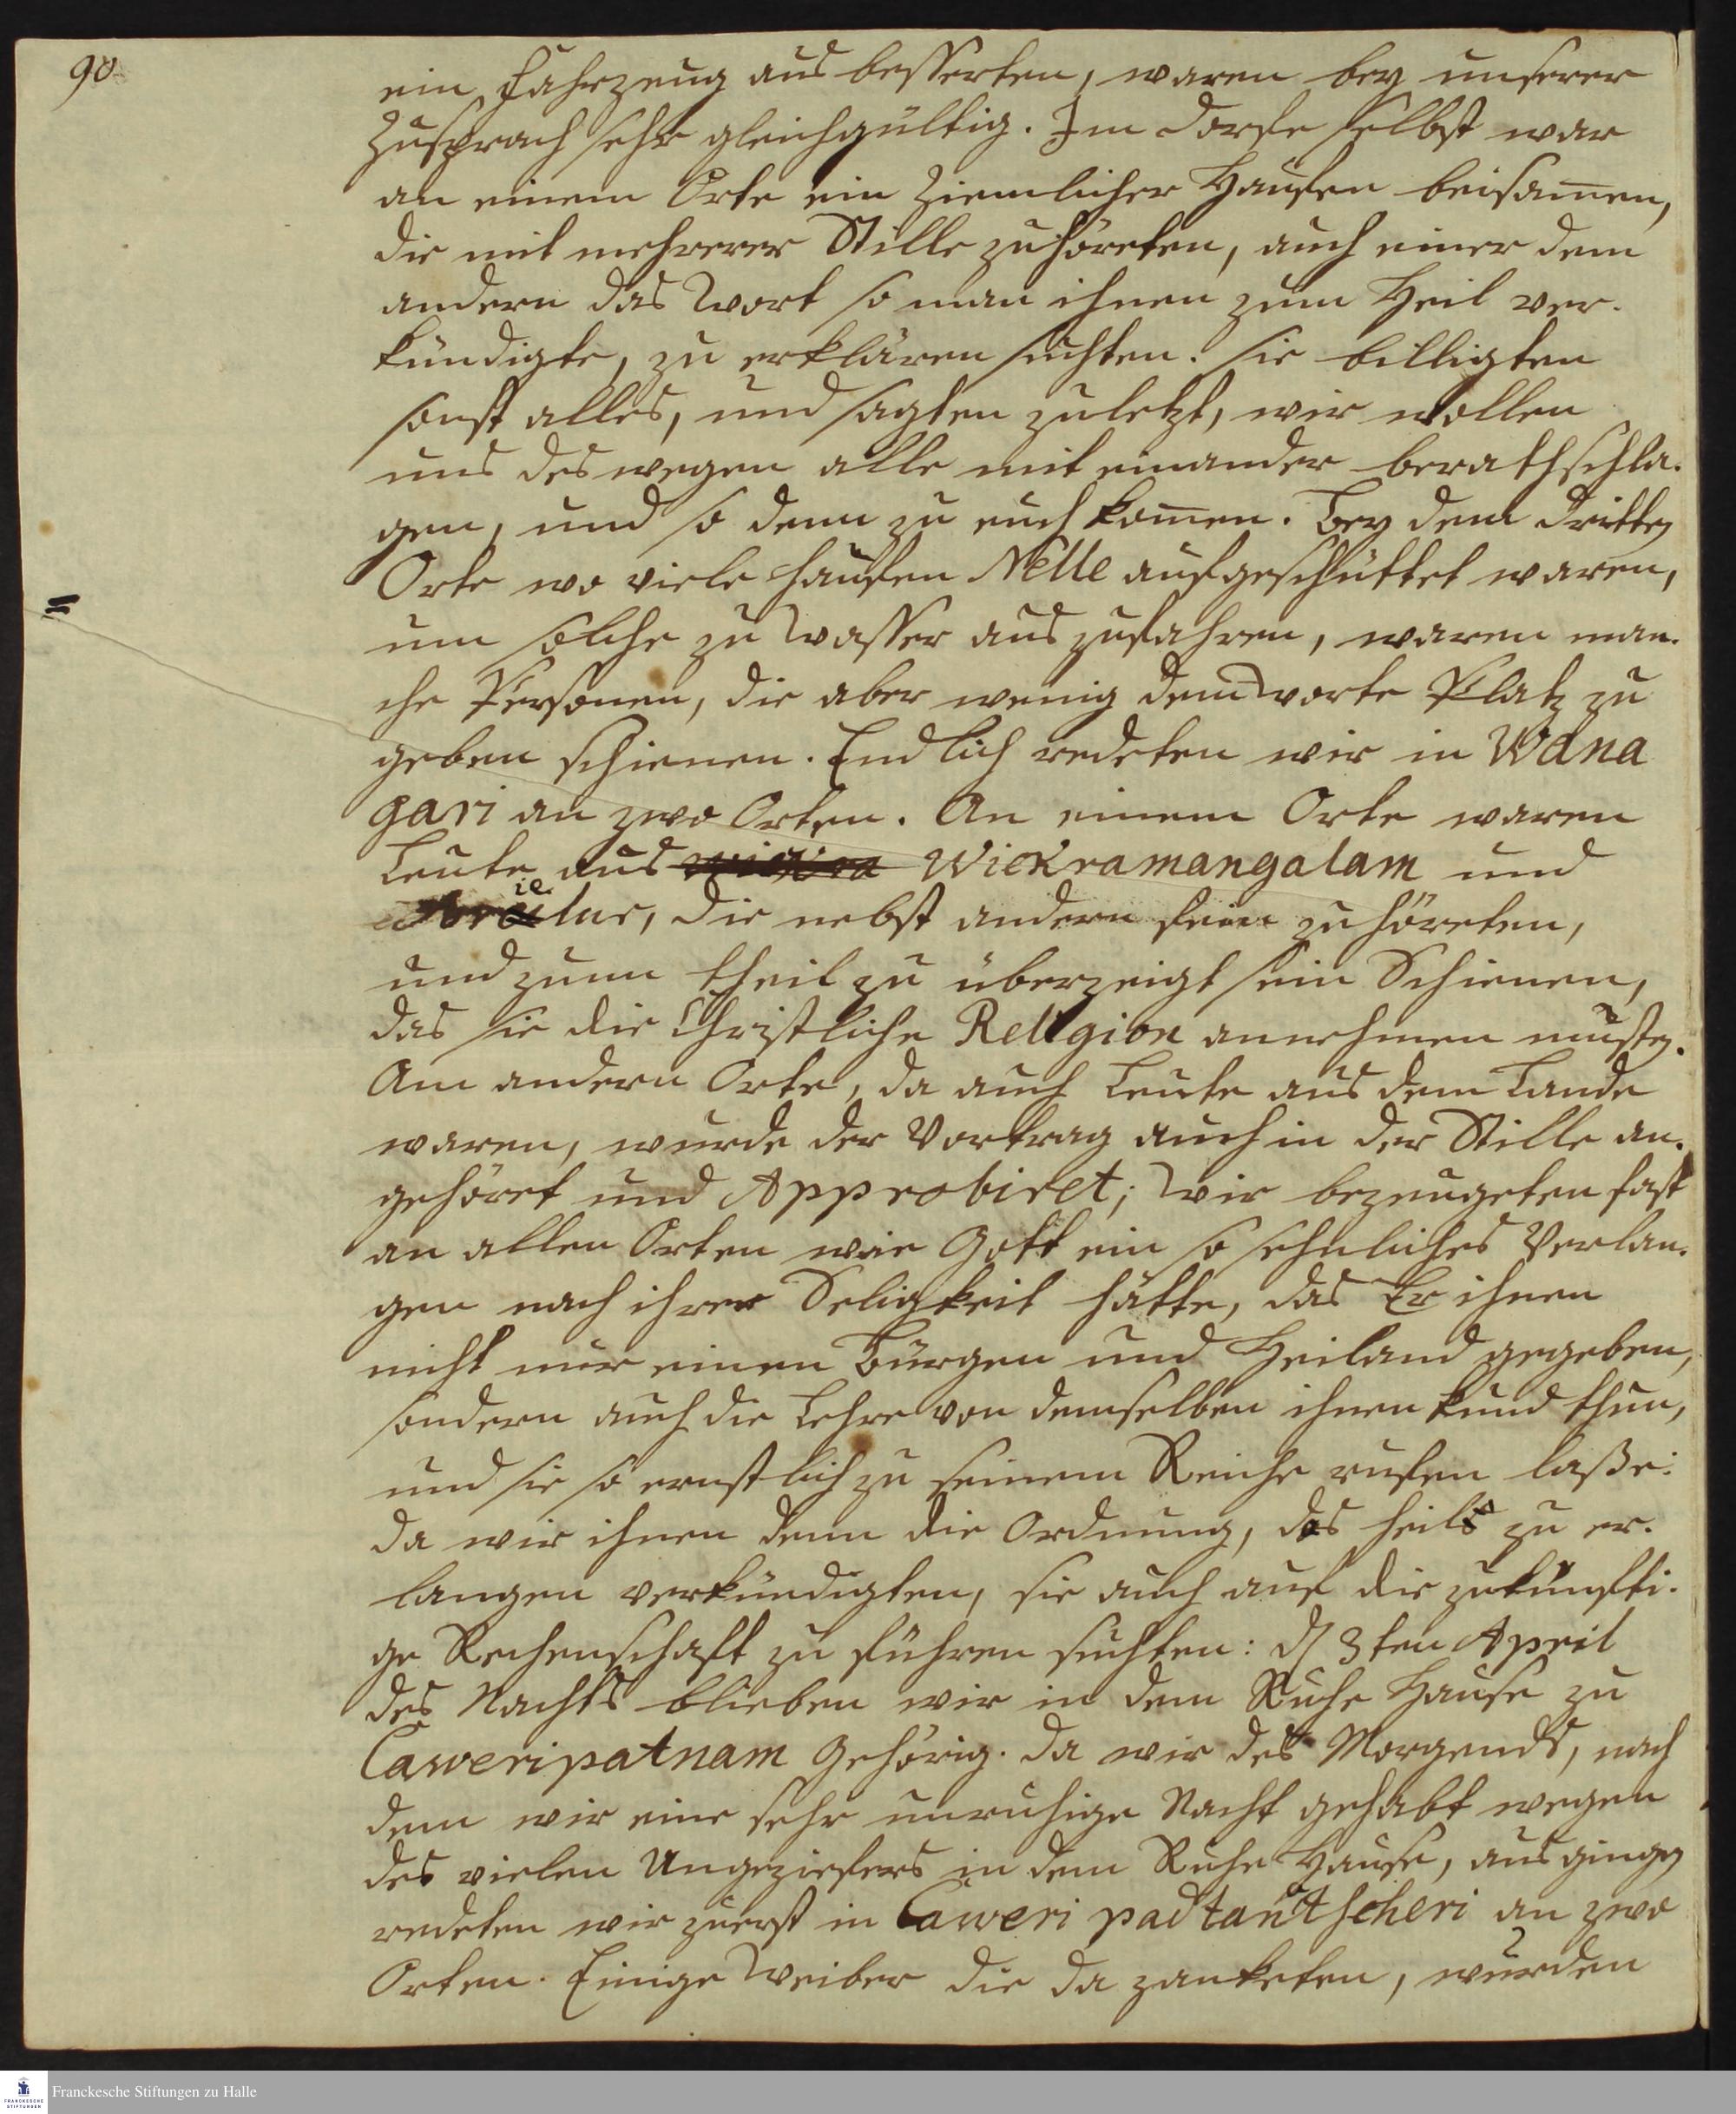 90
ein Fahrzeug ausbesserten, waren bey unserer
Zusprach sehr gleichgültig. Im Dorfe selbst war
an einem Orte ein ziemlicher Haufen beisam̄en,
die mit mehrerer Stille zuhöreten, auch einer dem
andern das Wort so man ihnen zum Heil ver-
kündigte, zu erklären suchten. sie billigten
sonst alles, und sagten zuletzt, wir wollen
uns deswegen alle mit einander berathschla-
gen, und so denn zu euch kom̄en. Bey dem dritten
Orte wo viele Haufen Nelle aufgeschüttet waren,
um solche zu Wasser auszufahren, waren man-
che Personen, die aber wenig dem Worte Platz zu
geben schienen. Endlich redeten wir in Wána
gari an zwo Orten. An einem Orte waren
Leute aus Wickramangalam und
ielur, die nebst andern fein zuhöreten,
und zum theil zu überzeigt sein Schienen,
das sie die Christliche Religion annehmen musten.
Am andern Orte, da auch Leute aus dem Lande
waren, wurde der Vortrag auch in der Stille an-
gehöret und Approbiret; Wir bezeugeten fast
an allen Orten wie Gott ein so sehnliches Verlan-
gen nach ihrer Seligkeit hätte, das Er ihnen
nicht nur einen Bürgen und Heiland gegeben,
sondern auch die Lehre von demselben ihnen kund thun,
und sie so ernstlich zu seinem Reiche rufen laße.
da wir ihnen denn die Ordnung, das heil zu er-
langen verkündigten, sie auch auf die zukünfti-
ge Rechenschaft zu führen suchten: d 3ten April
des Nachts blieben wir in dem Ruhe Hause zu
Caweripatnam Gehörig. da wir des Morgends, nach
dem wir eine sehr unruhige Nacht gehabt wegen
des vielen Ungeziefers in dem Ruhe Hause, ausgingen
redeten wir zuerst in Caweri padtantscheri an zwo
Orten. Einige Weiber die da zanketen, wurden
Franckesche Stiftungen zu Halle